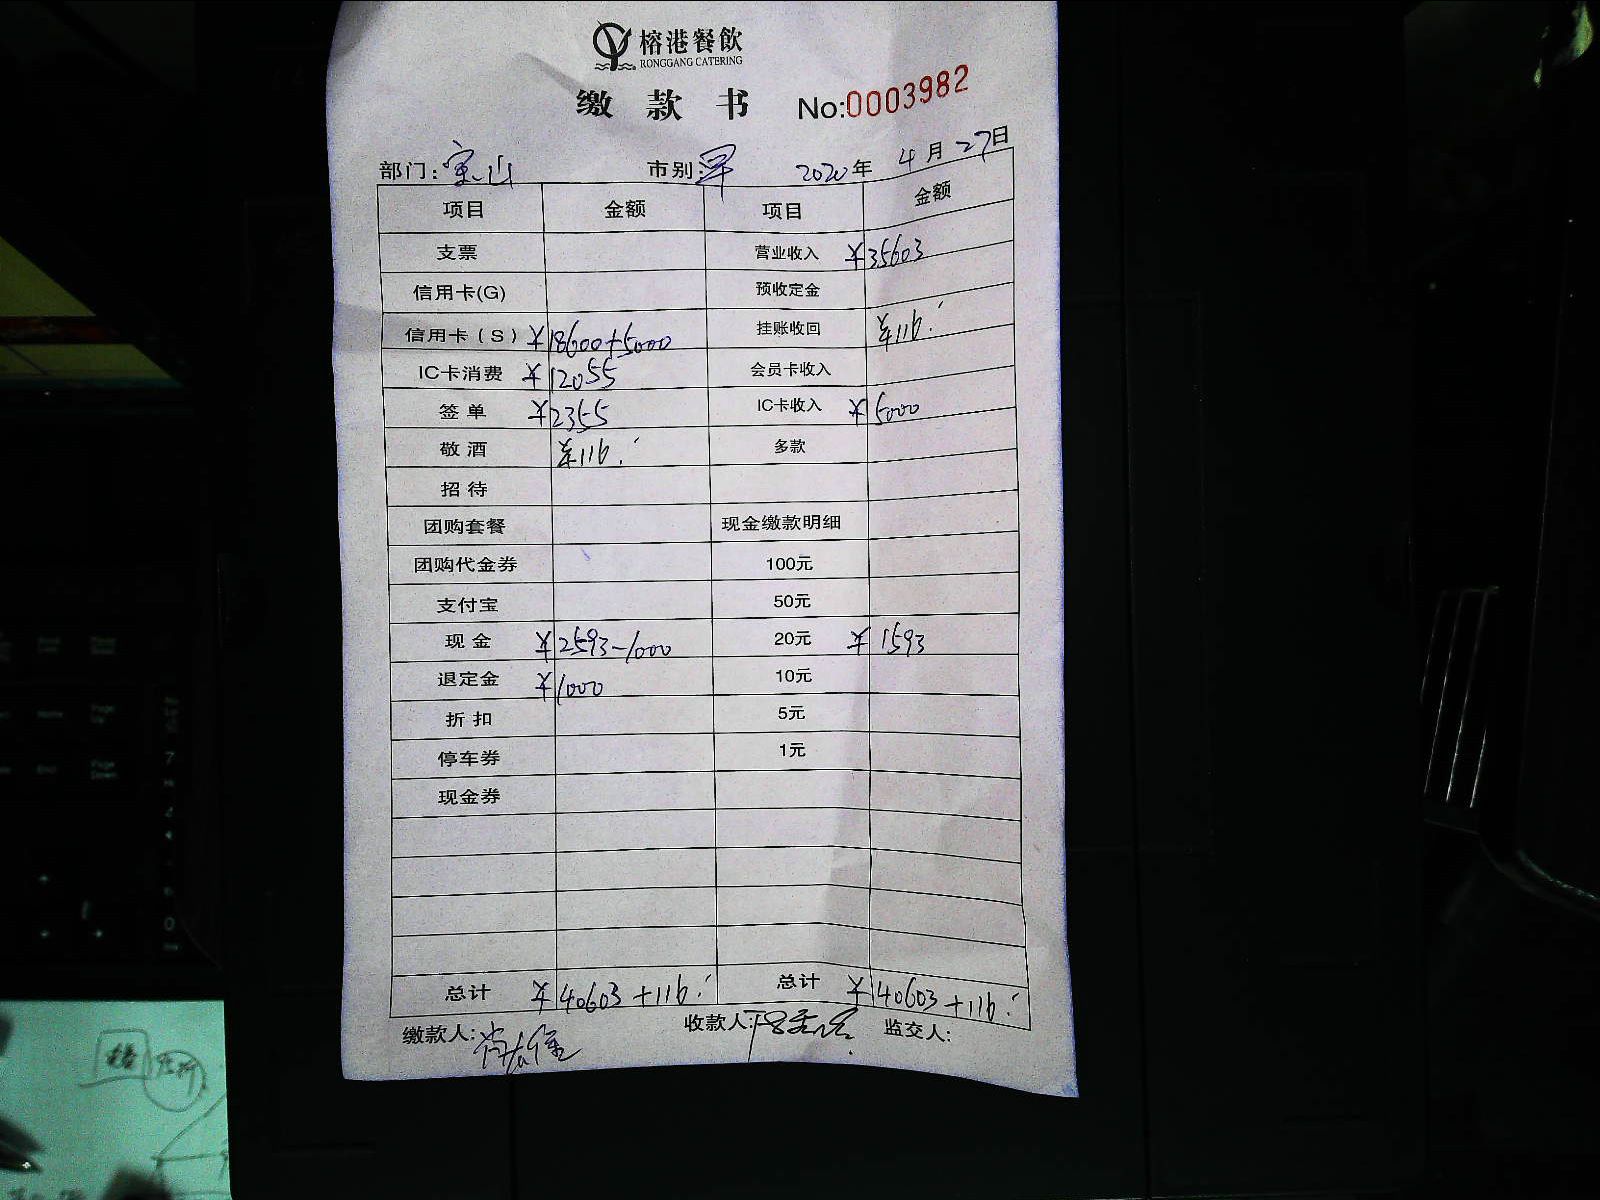 榕港餐飲
RONGGANG CATERING
缴款书 No:0003982
部门：宝山 市别：早 2020年4月27日
项目 金额 项目 金额
支票 营业收入 ¥35603
信用卡(G) 预收定金
信用卡（S） ¥18600+5000 挂账收回 ¥116.
IC卡消费 ¥12055 会员卡收入
签单 ¥2355 IC卡收入 ¥5000
敬酒 ¥116. 多款
招待
团购套餐 现金缴款明细
团购代金券 100元
支付宝 50元
现金 ¥2593-1000 20元 ¥1593
退定金 ¥1000 10元
折扣 5元
停车券 1元
现金券
总计 ¥40603+116. 总计 ¥40603+116.
缴款人: 收款人: 监交人: